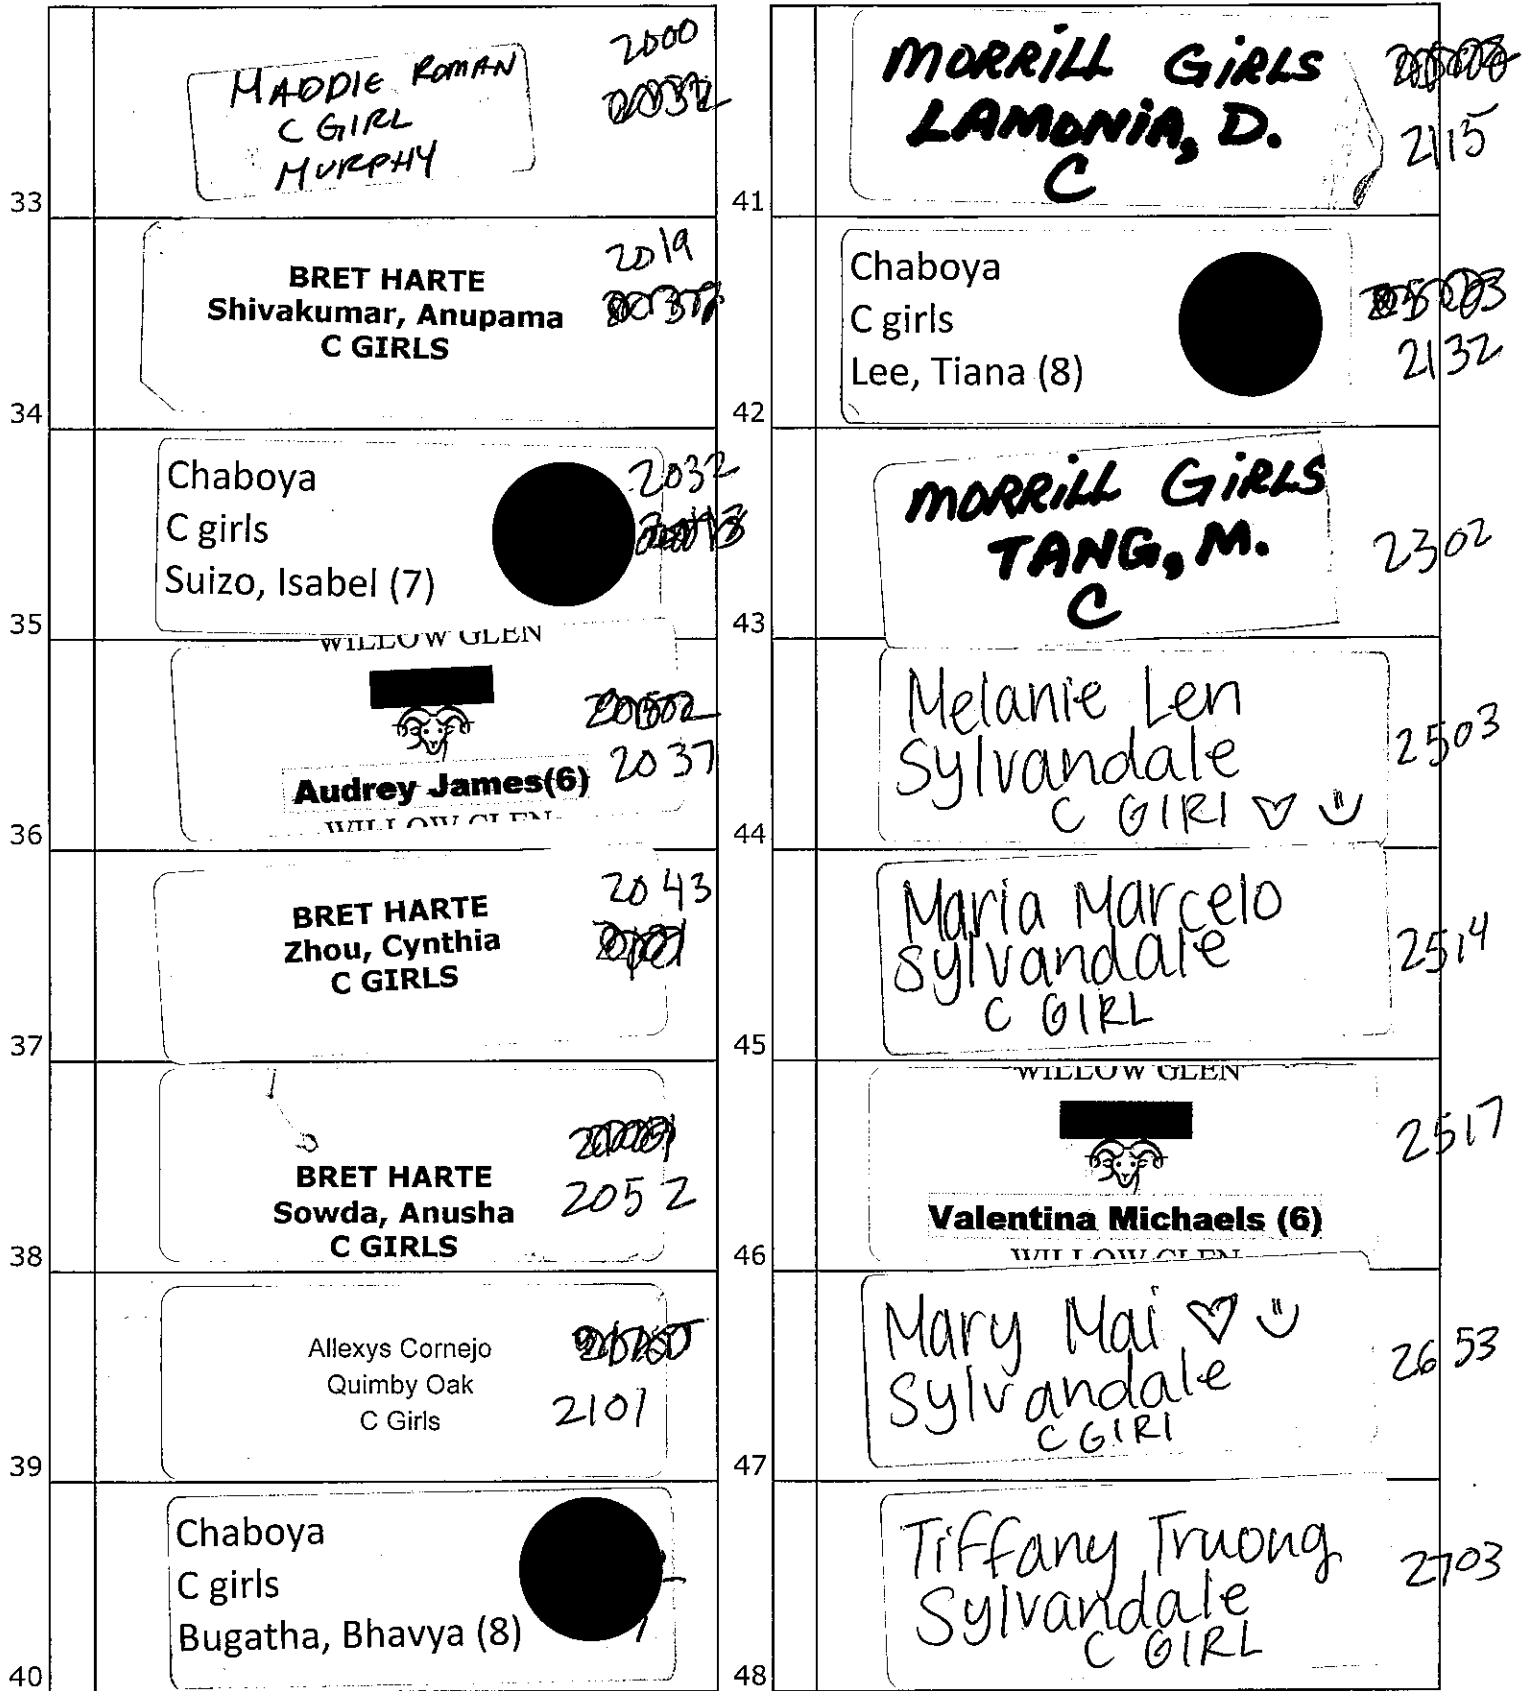 MADDIE ROMAN
C GIRL
MURPHY
2000
33
BRET HARTE
Shivakumar, Anupama
C GIRLS
2019
34
Chaboya
C girls
Suizo, Isabel (7)
2032
35
WILLOW GLEN
Audrey James(6)
WILLOW GLEN
2037
36
BRET HARTE
Zhou, Cynthia
C GIRLS
2043
37
BRET HARTE
Sowda, Anusha
C GIRLS
2052
38
Allexys Cornejo
Quimby Oak
C Girls
2101
39
Chaboya
C girls
Bugatha, Bhavya (8)
40
MORRiLL GiRLS
LAMONiA, D.
C
2115
41
Chaboya
C girls
Lee, Tiana (8)
2132
42
MORRiLL GiRLS
TANG, M.
C
2302
43
Melanie Len
Sylvandale
C GIRl
2503
44
Maria Marcelo
Sylvandale
C GIRL
2514
45
WILLOW GLEN
Valentina Michaels (6)
WILLOW GLEN
2517
46
Mary Mai
Sylvandale
C GIRl
2653
47
Tiffany Truong
Sylvandale
C GIRL
2703
48